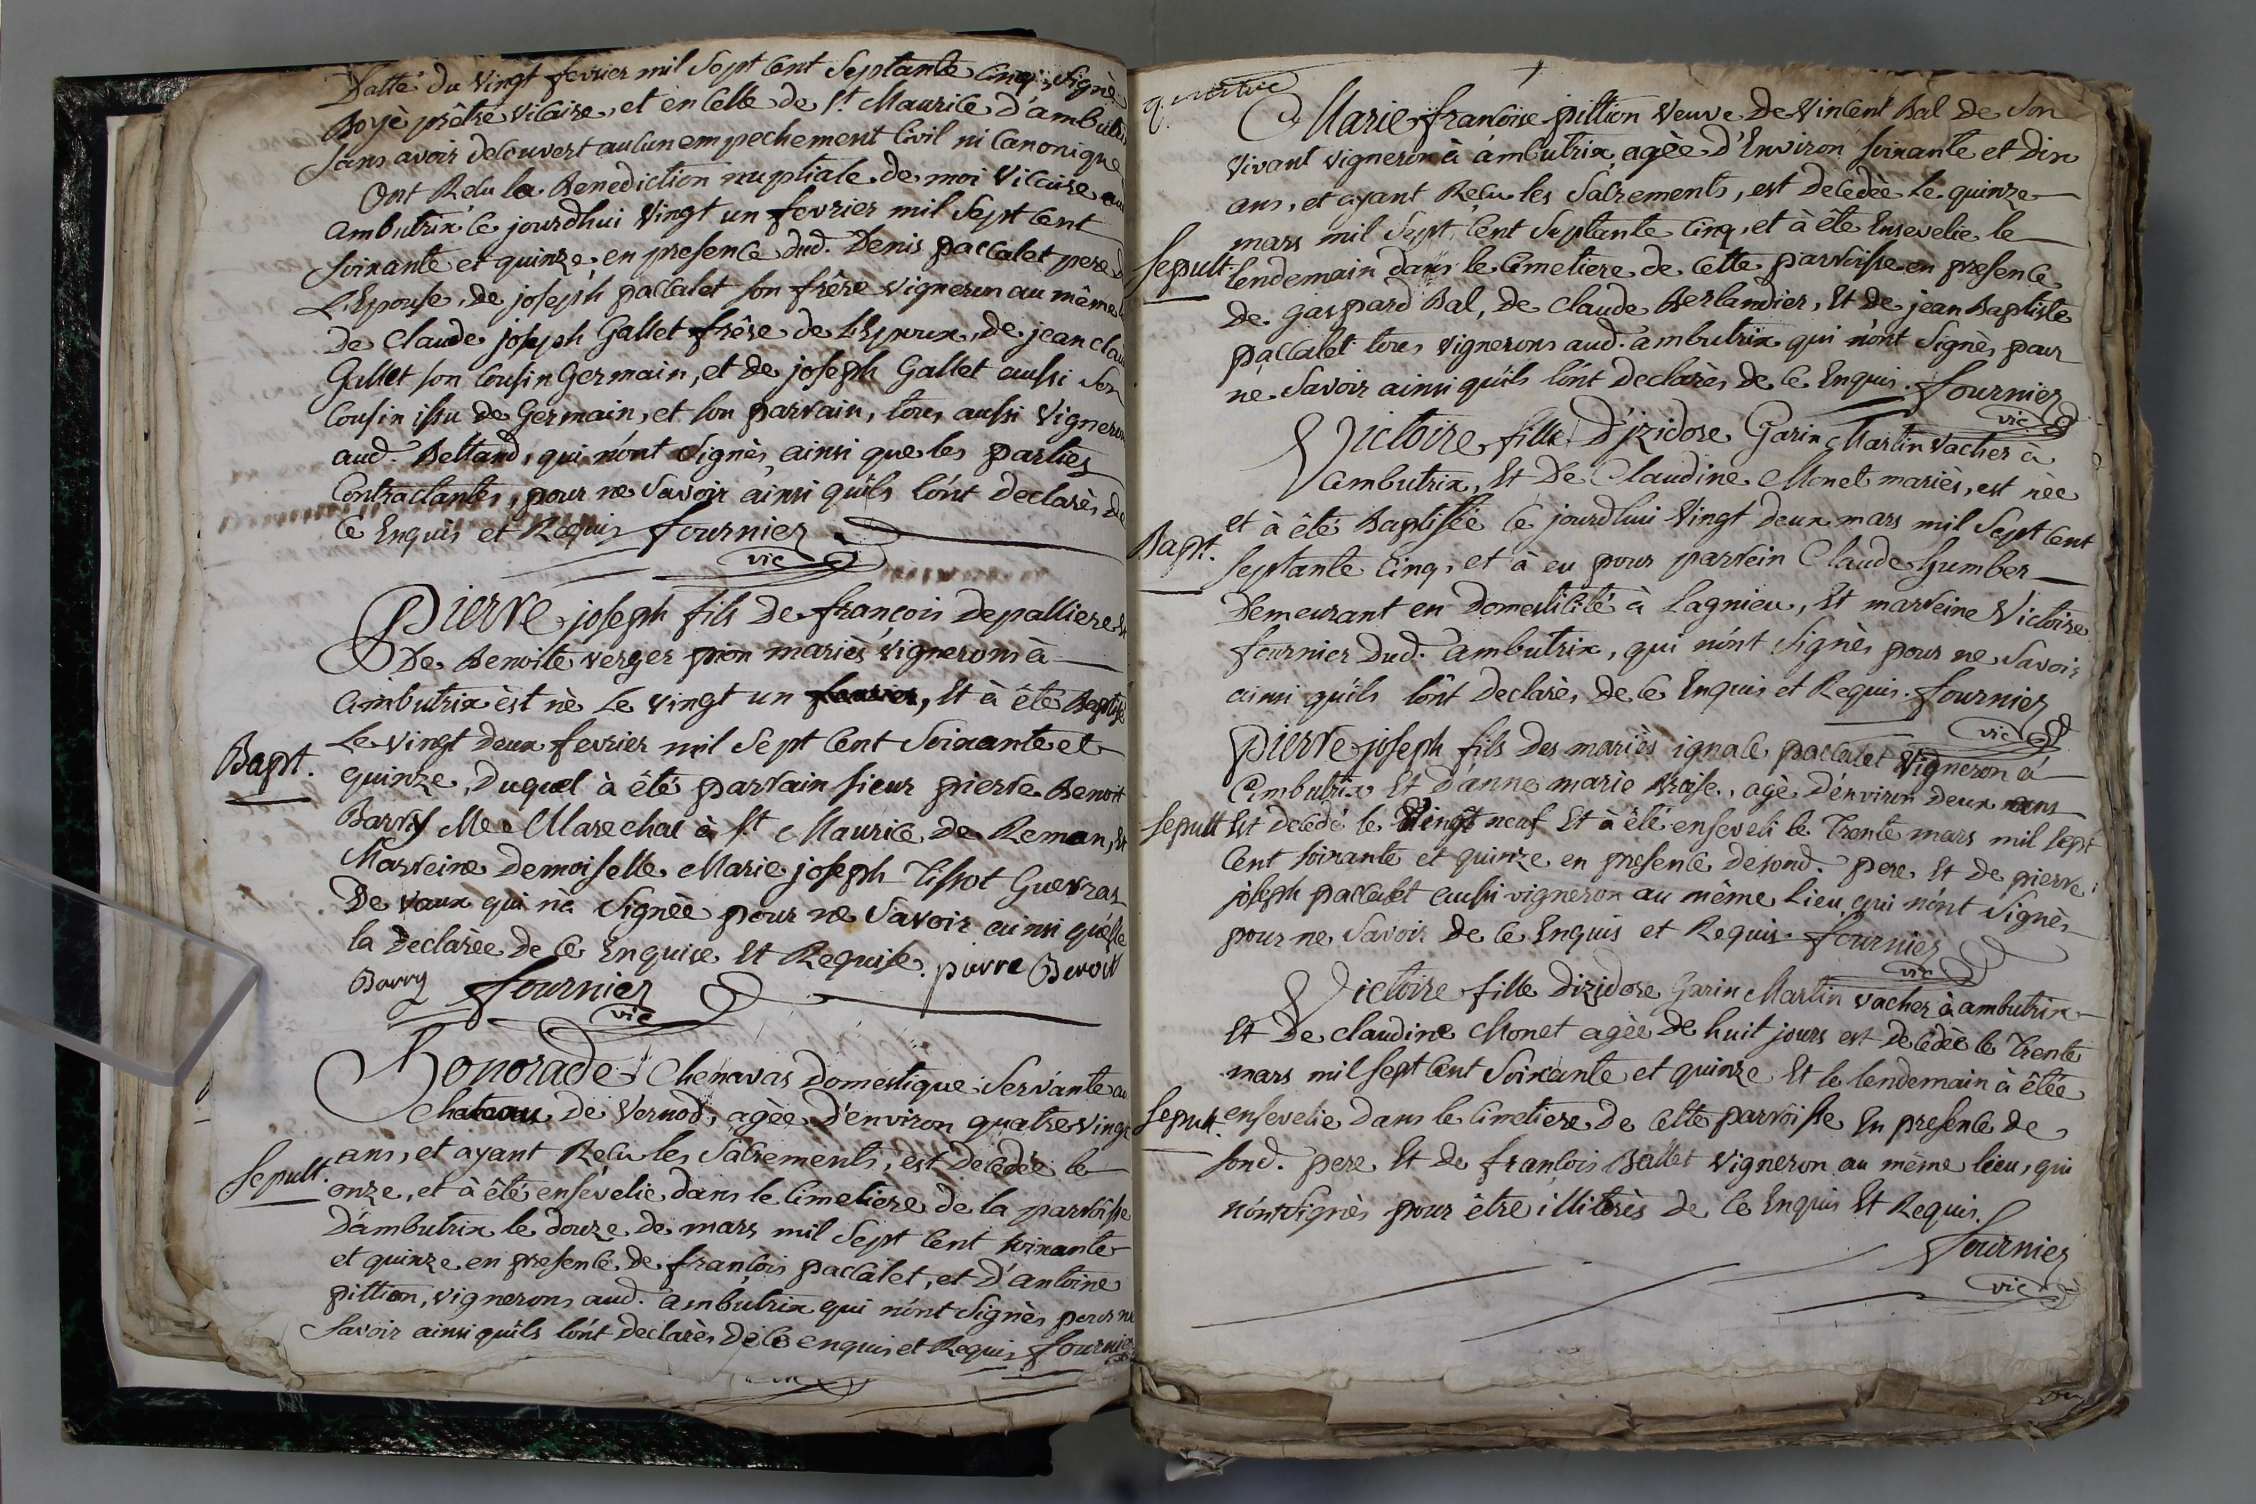 Datté du vingt fevrier mil Sept Cent Septante Cinq, Signé
Boyé prêtre Vicaire, et en Celle de St. Maurice d'ambutrix
Sans avoir decouvert aucun empechement Civil ni Canonique
Ont Recu la Benediction nuptiale de moi Vicaire aud.
ambutrix le jourdhui vingt un fevrier mil Sept Cent
soixante et quinze en presence dud. Denis paccalet pere de
L'Epouse, de joseph paccalet son frère vigneron au même
de Claude joseph Gallet frêre de L'Epoux, de jean claude
Gallet son Cousin Germain, et de joseph Gallet aussi Son
Cousin issu de Germain, et son parrain, tous aussi Vignerons
aud. Bettand, qui n'ont Signés ainsi que les parties
Contractantes, pour ne Savoir ainsi qu'ils l'ont Declarès de
Ce Enquis et Requis fournier
vic
Bapt.
Pierre joseph fils de françois depalliere et
De Benoite verger pion mariès vignerons à
ambutrix èst nè Le vingt un, Et à êté Baptisé
Le vingt deux fevrier mil Sept Cent Soixante et
quinze, Duquel à êté parrain sieur pierre Benoit
Barry Me Marechal à St. Maurice de Reman, et
Marreine Demoiselle Marie joseph Tissot Guerraz
De vaux qui n'a Signèe pour ne Savoir ainsi qu'elle
la Declarèe de Ce Enquise Et Requise. pierre Benoit
Barry fournier
vic
Sepult.
Honorade Chenavas Domestique Servante au
Chateau de Vernod, agèe d'environ quatre Vingt
ans, et ayant Recu les Sacrements, est Decedèe le
onze, et à êté ensévelie dans le Cimetiere de la parroisse
D'ambutrix le douze de mars mil Sept Cent soixante
et quinze en presence de françois paccalet, et D'antoine
pittion, vignerons aud. ambutrix qui n'ont Signès pour ne
Savoir ainsi qu'ils l'ont Declarès de Ce enquis et Requis fournier
Marie françoise pittion Veuve De Vincent Bal De Son
Vivant vigneron à ambutrix, agèe d'Environ soixante et Dix
ans, et ayant Recu les Sacrements, est Decedèe Le quinze
mars mil Sept Cent Septante Cinq, et à êté Ensevelie le
Sepult. lendemain dans le Cimetiere de Cette parroisse en presence
De gaspard Bal, de Claude Berlandier, Et de jean Baptiste
paccalet tous vignerons aud. ambutrix qui n'ont Signès pour
ne Savoir ainsi qu'ils l'ont Declarès de Ce Enquis. fournier
vic
Victoire fille D'jzidore Garin Martin vacher à
ambutrix, Et De Claudine Monet mariès, est nèe
et à êté Baptisée le jourdhui Vingt deux mars mil Sept Cent
Bapt. Septante Cinq, et à eu pour parrein Claude humber
Demeurant en Domesticité à Lagnieu, Et marreine Victoire
fournier Dud. ambutrix, qui n'ont Signès pour ne Savoir
ainsi qu'ils l'ont Declarès, De Ce Enquis et Requis. fournier
vic
Pierre joseph fils Des mariès ignace paccalet Vigneron à
ambutrix Et D'anne marie, agè D'environ Deux ans
Sepult Est decedé le Vingt neuf Et à êté enseveli le Trente mars mil Sept
Cent soixante et quinze en presence de sond. pere Et de pierre
joseph paccalet aussi vigneron au même Lieu qui n'ont Signès
pour ne Savoir De Ce Enquis et Requis. fournier
vic
Victoire fille Dizidore Garin Martin vacher à ambutrix
Et De claudine Monet agèe De huit jours est Decedèe le Trente
mars mil Sept Cent Soixante et quinze Et le lendemain à êtée
Sepult. ensevelie dans le Cimetiere de Cette parroisse En presence de
sond. pere Et de françois Ballet vigneron au même lieu, qui
n'ont Signès pour être illitérès de Ce Enquis Et Requis.
fournier
vic